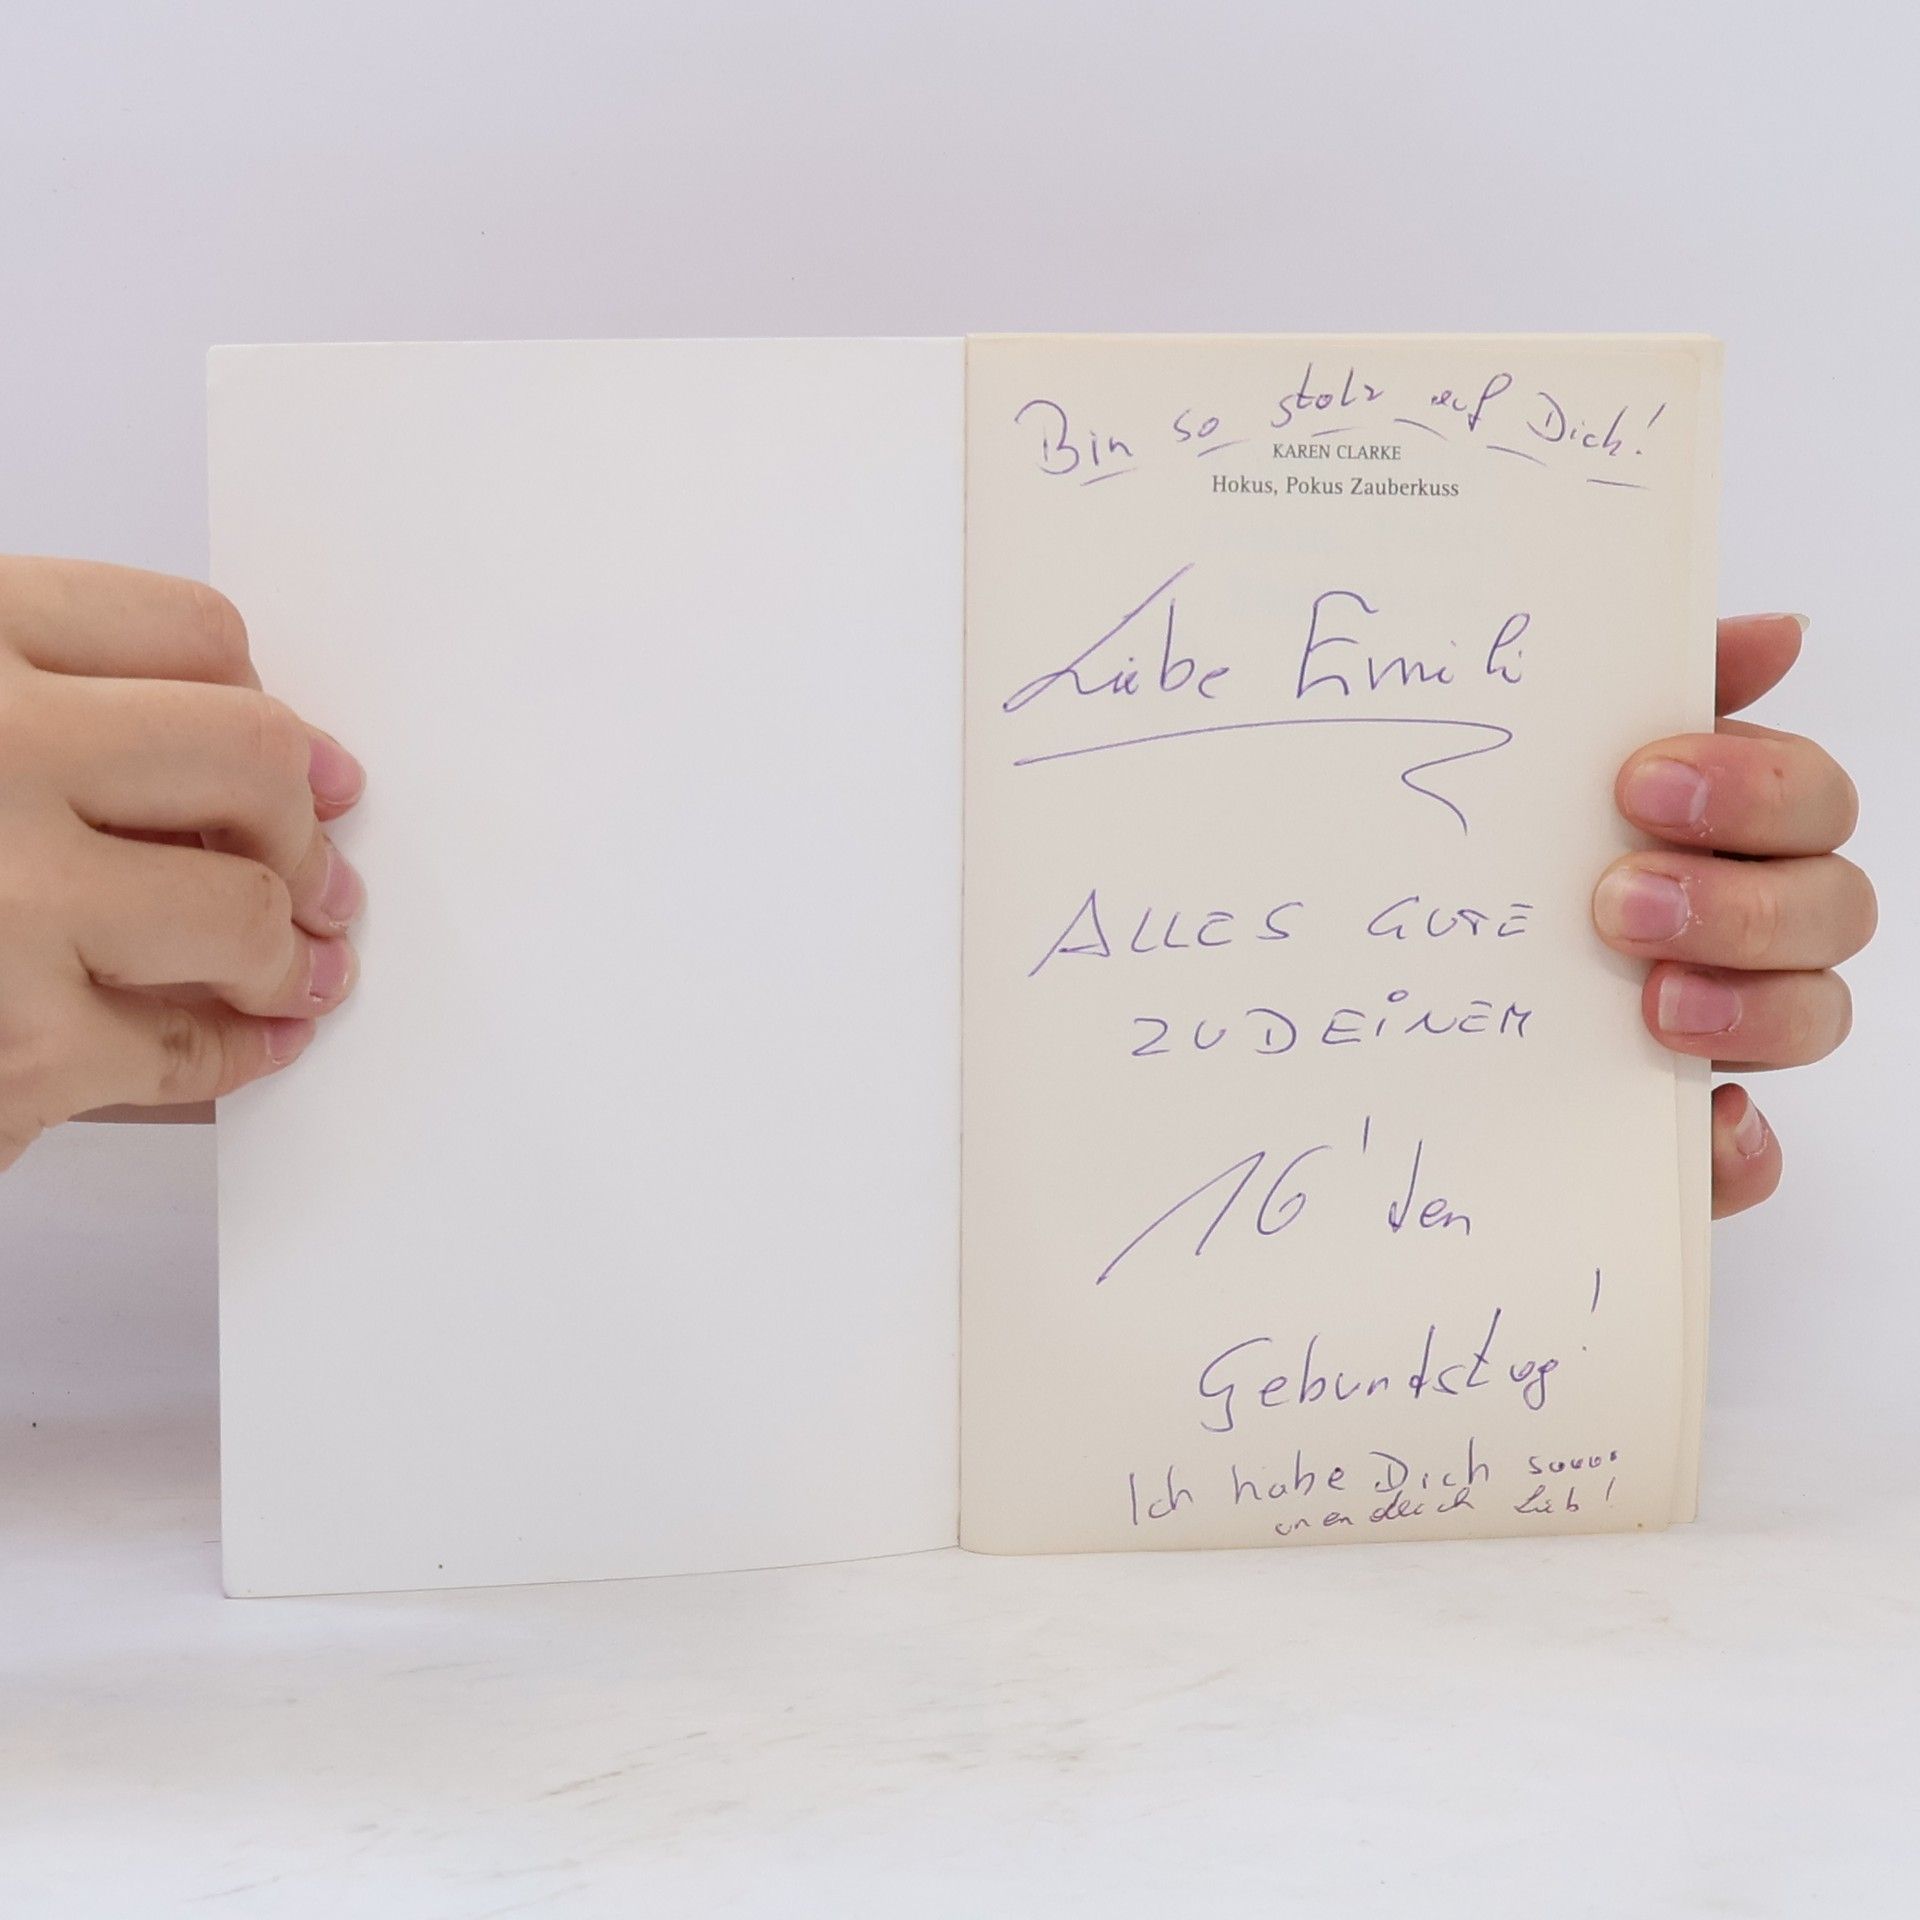 Bin so stolz auf Dich!
KAREN CLARKE
Hokus, Pokus Zauberkuss
Liebe Emili
ALLES GUTE
ZU DEINEM
16'den
Geburdstag!
Ich habe Dich soooo
unendlich Lieb!